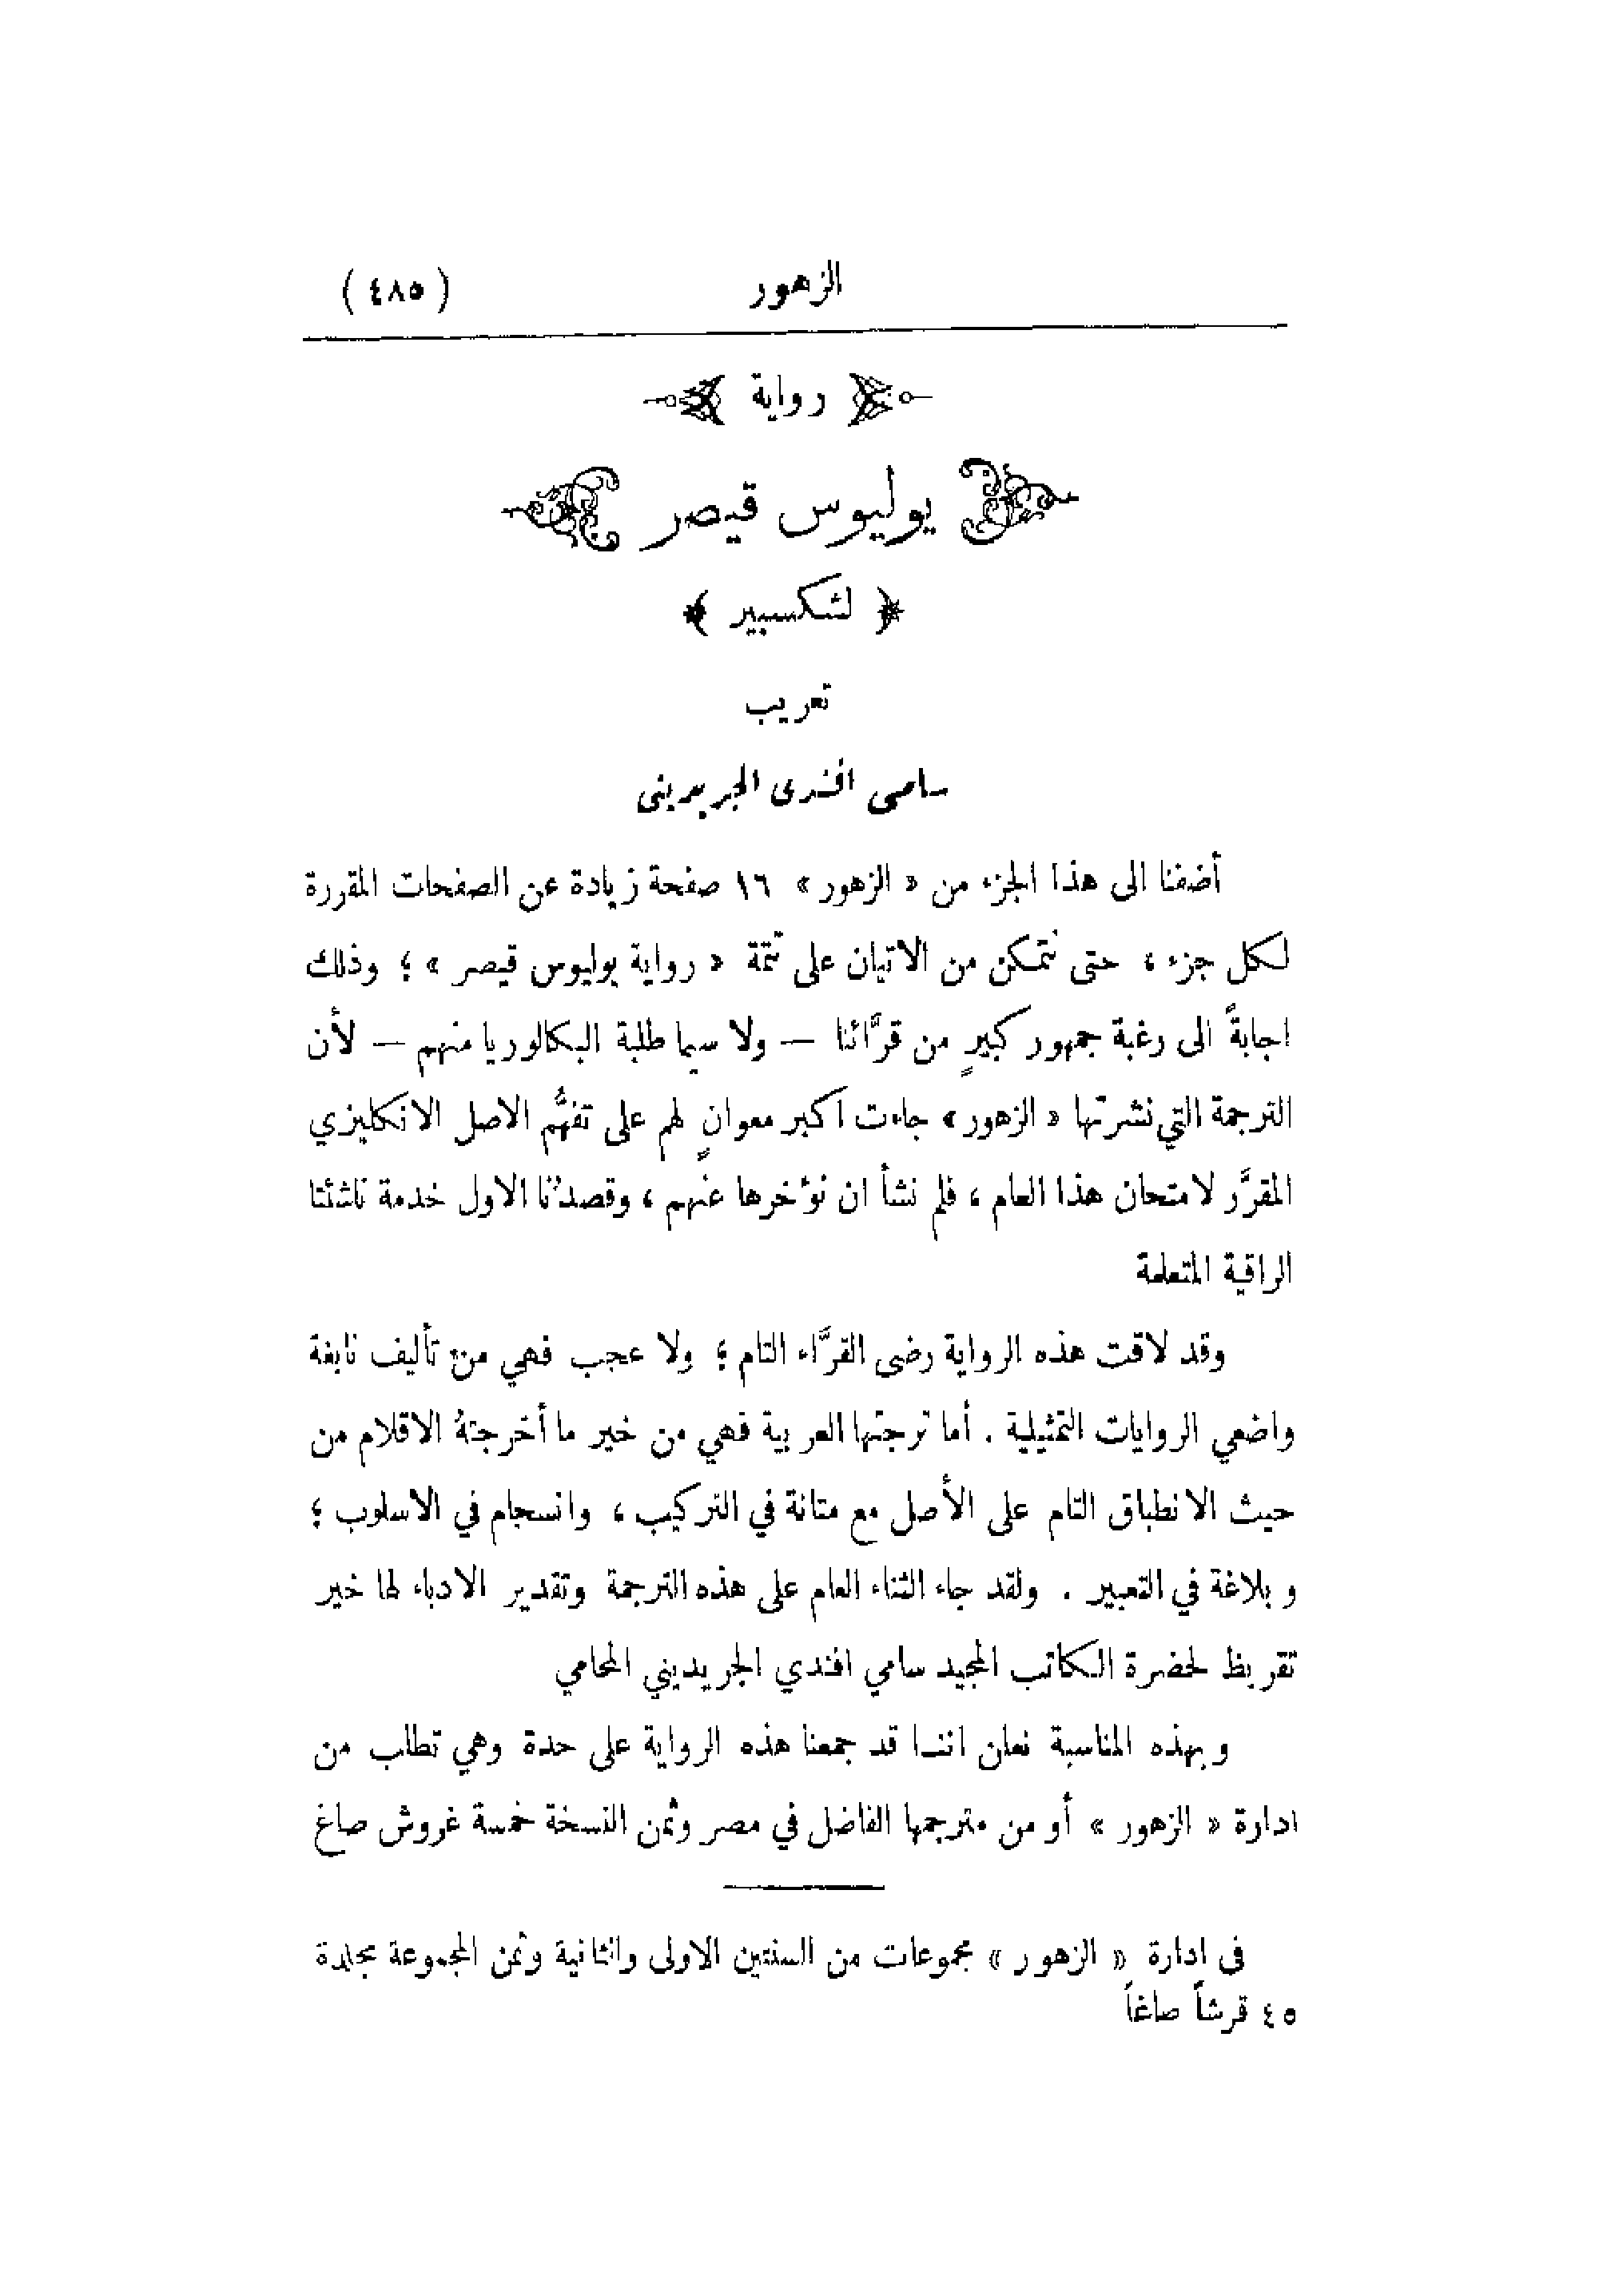 الزهور (٤٨٥)
رواية
يوليوس قيصر
﴿ لشكسبير ﴾
تعريب
سامى افندى الجريدينى
أضفنا الى هذا الجزء من « الزهور » ١٦ صفحة زيادة عن الصفحات المقررة
لكل جزء ، حتى نتمكن من الاتيان على تتمّة « رواية يوليوس قيصر » ؛ وذلك
اجابةً الى رغبة جمهور كبيرٍ من قرَّائنا — ولا سيما طلبة البكالوريا منهم — لأن
الترجمة التي نشرتها « الزهور » جاءت اكبر معوانٍ لهم على تفهُّم الاصل الانكليزي
المقرَّر لامتحان هذا العام ، فلم نشأ ان نؤخرها عنهم ، وقصدُنا الاول خدمة ناشئتنا
الراقية المتعلمة
وقد لاقت هذه الرواية رضى القرَّاء التام ؛ ولا عجب فهي من تأليف نابغة
واضعي الروايات التمثيلية . أما ترجمتها العربية فهي من خير ما أخرجتهُ الاقلام من
حيث الانطباق التام على الأصل مع متانة في التركيب ، وانسجام في الاسلوب ؛
وبلاغة في التعبير . ولقد جاء الثناء العام على هذه الترجمة وتقدير الادباء لها خير
تقريظ لحضرة الكاتب المجيد سامي افندي الجريديني المحامي
وبهذه المناسبة نعلن اننا قد جمعنا هذه الرواية على حدة وهي تطلب من
ادارة « الزهور » أو من مترجمها الفاضل في مصر وثمن النسخة خمسة غروش صاغ
فى ادارة « الزهور » مجموعات من السنتين الاولى والثانية وثمن المجموعة مجلدة
٤٥ قرشاً صاغاً